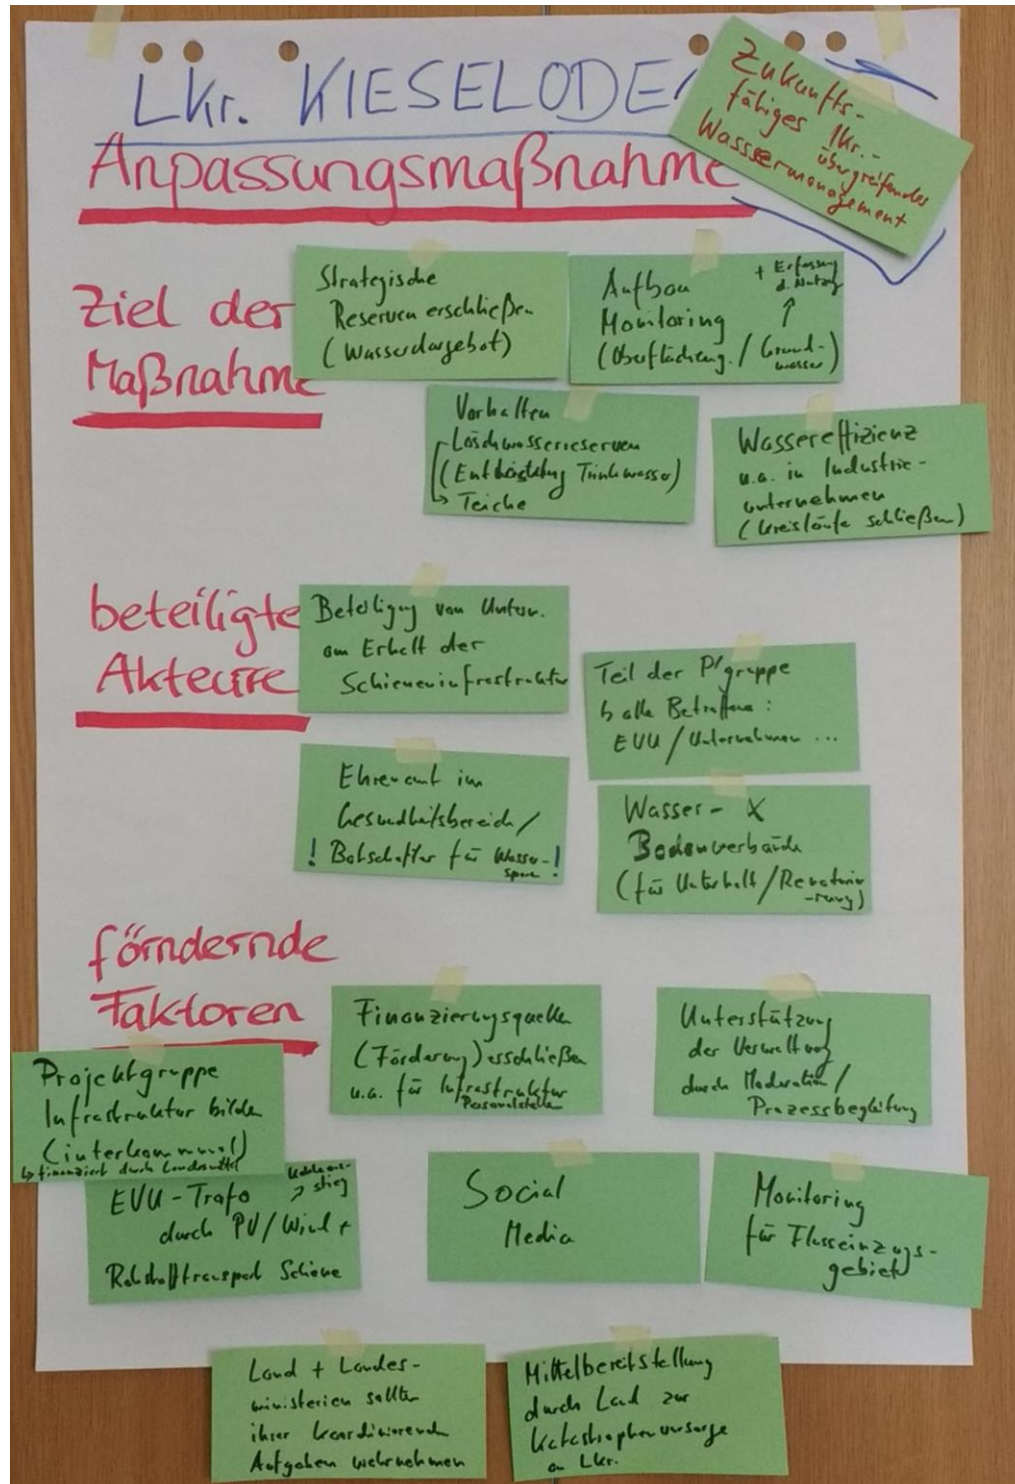 Lkr. KIESELODE
Zukunfts-
fähiges lkr.-
übergreifendes
Wassermanagement
Anpassungsmaßnahme
Ziel der
Maßnahme
Strategische
Reserven erschließen
(Wasserdargebot)
Aufbau
Monitoring
(Oberflächeng. / Grund-
wasser)
+ Erfassung
d. Nutzg
Vorhalten
Löschwasserreserven
(Entlastung Trinkwasser)
↳ Teiche
Wassereffizienz
u.a. in Industrie-
unternehmen
(Kreisläufe schließen)
beteiligte
Akteure
Beteiligg von Untern.
am Erhalt der
Schieneninfrastruktur
Teil der P'gruppe
↳ alle Betroffene :
EVU / Unternehmen ...
Ehrenamt im
Gesundheitsbereich /
! Botschafter für Wasser- !
sparen
Wasser- &
Bodenverbände
(für Unterhalt / Renaturie
-rung)
förndernde
Faktoren
Finanzierungsquellen
(Förderung) erschließen
u.a. für Infrastruktur
Personalstellen
Unterstützung
der Verwaltung
durch Moderation /
Prozessbegleitung
Projektgruppe
Infrastruktur bilden
(interkommunal)
↳ finanziert durch Landesmittel
EVU - Trafo
Kohleaus-
stieg
durch PV / Wind +
Rohstofftransport Schiene
Social
Media
Monitoring
für Flusseinzugs-
gebiet
Land + Landes-
ministerien sollten
ihrer koordinierenden
Aufgaben wahrnehmen
Mittelbereitstellung
durch Land zur
Katastrophenvorsorge
an Lkr.